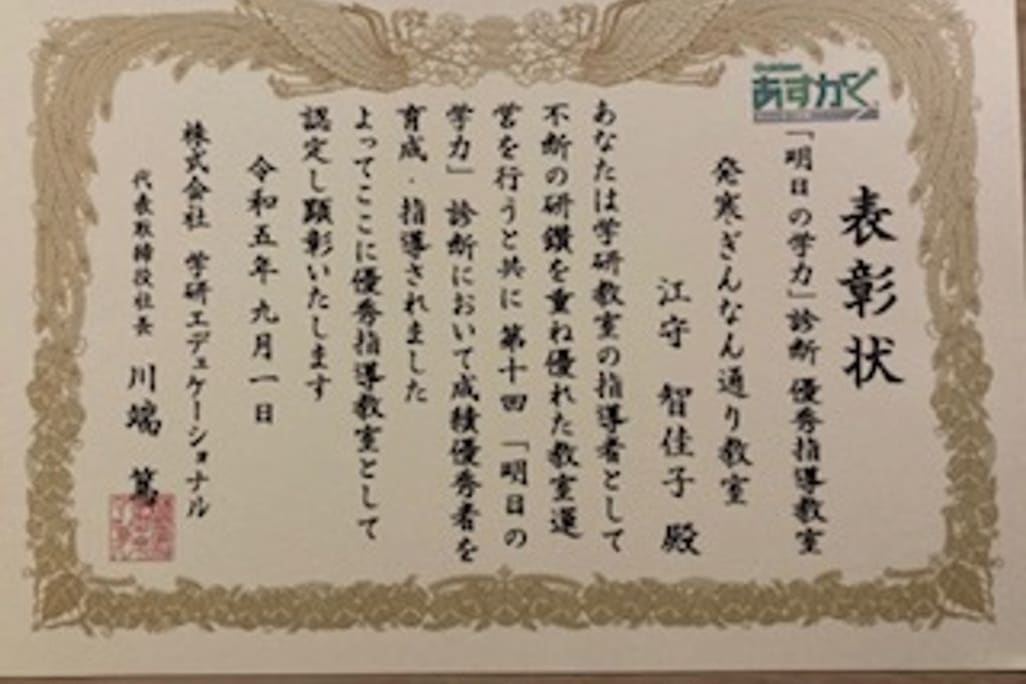 あすがく
表彰状
「明日の学力」診断 優秀指導教室
発寒ぎんなん通り教室
江守 智佳子 殿
あなたは学研教室の指導者として
不断の研鑽を重ね優れた教室運
営を行うと共に第十回「明日の
学力」診断において成績優秀者を
育成・指導されました
よってここに優秀指導教室として
認定し顕彰いたします
令和五年九月一日
株式会社 学研エデュケーショナル
代表取締役社長 川端 篤